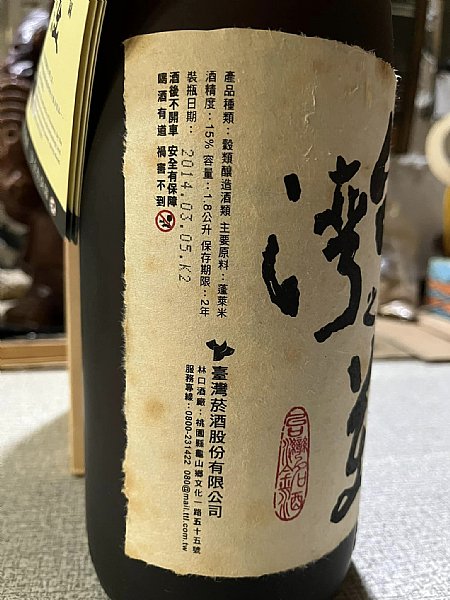 臺灣之美
產品種類：穀類釀造酒類 主要原料：蓬萊米
酒精度：15% 容量：1.8公升 保存期限：2年
裝瓶日期： 2014.03.05.K2
酒後不開車 安全有保障
喝酒有道 禍害不到
臺灣菸酒股份有限公司
林口酒廠：桃園縣龜山鄉文化一路五十五號
服務專線：0800-231422 080@mail.ttl.com.tw